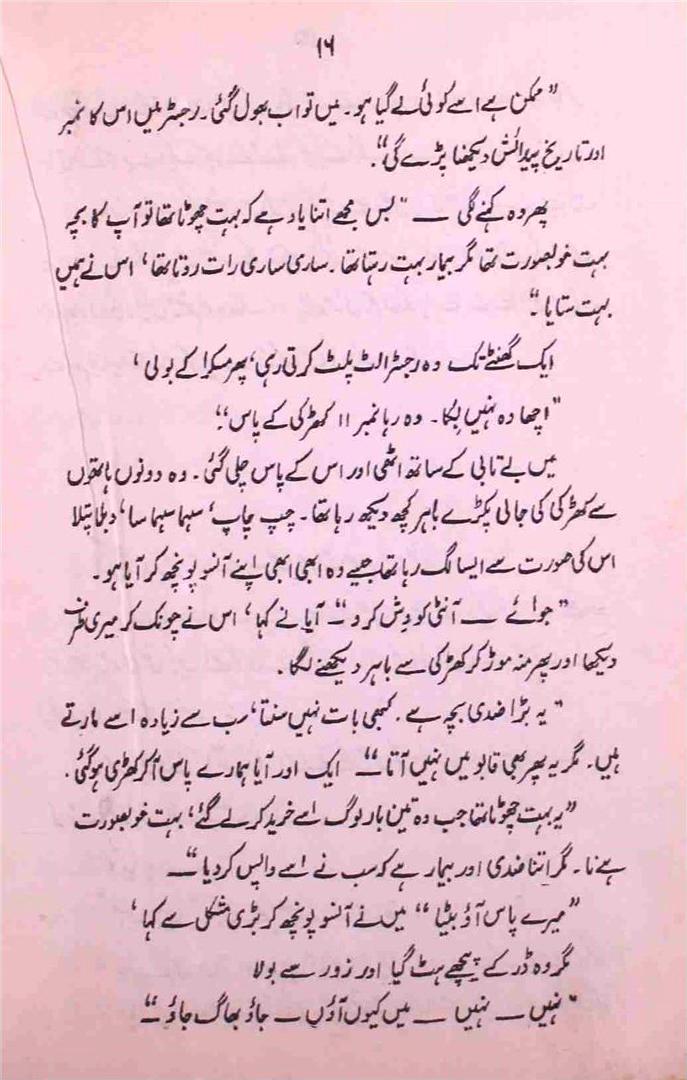 ۱۶
”ممکن ہے اسے کوئی لے گیا ہو۔ میں تو اب بھول گئی۔ رجسٹر میں اس کا نمبر
اور تاریخ پیدائش دیکھنا پڑے گی“۔
پھر وہ کہنے لگی — ”بس مجھے اتنا یاد ہے کہ بہت چھوٹا تھا تو آپ کا بچہ
بہت خوبصورت تھا مگر بیمار بہت رہتا تھا۔ ساری ساری رات روتا تھا، اس نے ہمیں
بہت ستایا۔“
ایک گھنٹے تک وہ رجسٹر الٹ پلٹ کرتی رہی، پھر مسکرا کے بولی،
”اچھا وہ نہیں بکا۔ وہ رہا نمبر ۱۱ کھڑکی کے پاس“۔
میں بے تابی کے ساتھ اٹھی اور اس کے پاس چلی گئی۔ وہ دونوں ہاتھوں
سے کھڑکی کی جالی پکڑے باہر کچھ دیکھ رہا تھا۔ چپ چاپ، سہما سہما سا، دبلا پتلا
اس کی صورت سے ایسا لگ رہا تھا جیسے وہ ابھی ابھی اپنے آنسو پونچھ کر آیا ہو۔
”جوائے — آنٹی کو وِش کرو —“ آیا نے کہا، اس نے چونک کر میری طرف
دیکھا اور پھر منہ موڑ کر کھڑکی سے باہر دیکھنے لگا۔
”یہ بڑا ضدی بچہ ہے۔ کبھی بات نہیں سنتا، سب سے زیادہ اسے مارتے
ہیں۔ مگر یہ پھر بھی قابو میں نہیں آتا —“ ایک اور آیا ہمارے پاس آکر کھڑی ہوگئی۔
”یہ بہت چھوٹا تھا جب دو تین بار لوگ اسے خرید کر لے گئے، بہت خوبصورت
ہے نا۔ مگر اتنا ضدی اور بیمار ہے کہ سب نے اسے واپس کر دیا —“
”میرے پاس آؤ بیٹا“ میں نے آنسو پونچھ کر بڑی مشکل سے کہا،
مگر وہ ڈر کے پیچھے ہٹ گیا اور زور سے بولا
”نہیں — نہیں — میں کیوں آؤں — جاؤ بھاگ جاؤ —“